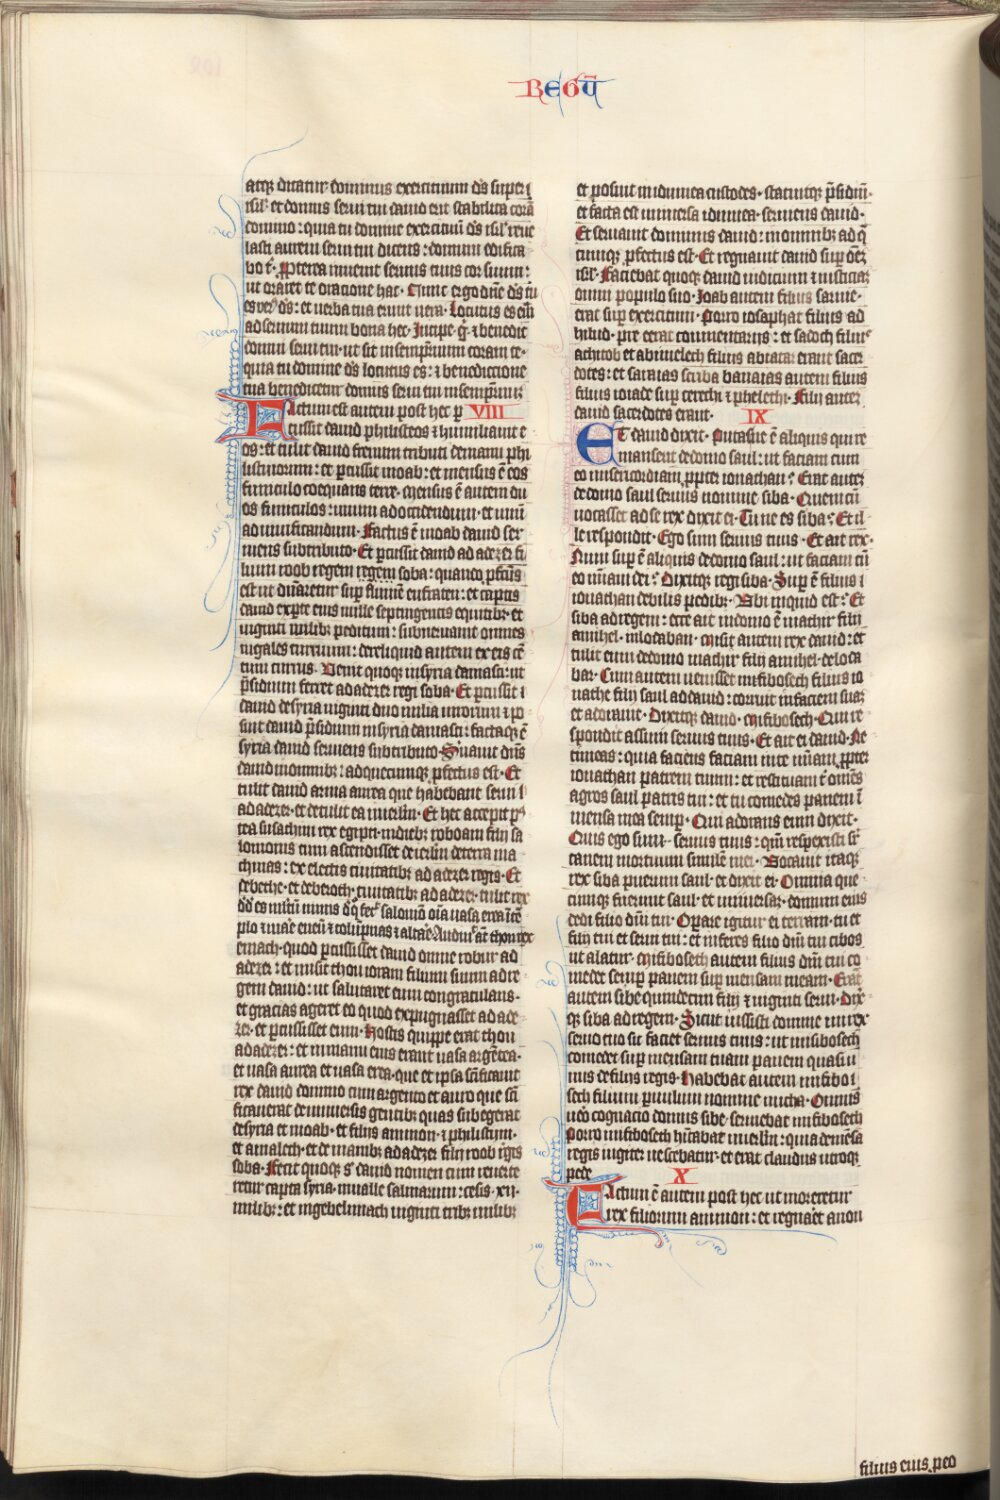 REGŪ
atq; dicatur dominus exercituum ds super i
isrl· et domus serui tui dauid erit stabilita corā
domino: quia tu domine exercituū ds isrl reue
lasti aurem serui tui dicens: domum edifica
bo t̄· Ppterea inuenit seruus tuus cor suum:
ut oraret te oratione hac· Nunc ergo dn̄e ds tu
es ver ds: et uerba tua erunt uera· Locutus es eni
ad seruum tuum bona hec· Incipe g̊ ⁊ benedic
domui serui tui· ut sit in sempit̄num coram te·
quia tu domine ds locutus es: ⁊ benedictione
tua benedicetur domus serui tui insempit̄nuz
Factum est autem post hec p̄ VIII
cussit dauid philisteos ⁊ humiliauit e
os: et tulit dauid frenum tributi demanu phi
listinorum: et percussit moab: et mensus ē eos
funiculo coequans terre· Mensus ē autem du
os funiculos: unum ad occidendum· et unū
ad uiuificandum· Factus ē moab dauid ser
uiens sub tributo· Et percussit dauid ad adezer fi
lium roob regem regem soba: quando pfectus
est ut dn̄aretur sup flumē eufraten: et captis
dauid ex pte eius mille septingentis equitib; et
uiginti milib; peditum: subneruauit omnes
iugales curruum: dereliquid autem ex eis cē
tum currus. Uenit quoq; in syria damasci: ut
p̄sidium ferret adadezer regi soba· Et percussit i
dauid de syria uiginti duo milia uirorum ⁊ po
suit dauid p̄sidium in syria damasci: factaq; ē
syria dauid seruiens sub tributo· Suauit dn̄s
dauid in omnib; ad quecumq; pfectus est· Et
tulit dauid arma aurea que habebant serui i
adadezer· et detulit ea in ierlm̄· Et hec accepit po
stea susachim rex egipti· in dieb; roboam filij sa
lomonis cum ascendisset de ierlm̄ de terra ma
chinas: ex electis ciuitatib; ad adezer regis· Et
de beche· et de beroch· ciuitatib; ad adezer· tulit rex
dd es mltū nimis
Audiuit at thou rex
emach· quod percussisset dauid omne robur ad
adezer: et misit thou ioram filium suum ad re
gem dauid: ut salutaret eum congratulans·
et gracias ageret eo quod expugnasset ad ade
zer· et percussisset eum· Hostis quippe erat thou
adadezer: et in manu eius erant uasa argētea·
et uasa aurea et uasa erea· que et ipsa sc̄ificauit
rex dauid domino cum argento et auro que sc̄i
ficauerat de uniuersis gentib; quas subegerat
de syria et moab· et filiis ammon· ⁊ philistiim·
et amalech· et de manib; adadezer filij roob regis
soba· Fecit quoq; s̄ dauid nomen cum reuerte
retur capta syria· in ualle salinarum: cesis .xii.
milib;: et in gebelmach uiginti trib; milib;
et posuit in idumea custodes· statuitq; p̄sidiū·
et facta est uniuersa idumea· seruiens dauid·
Et seruauit dominus dauid: in omnib; ad q̄
cumq; pfectus est· Et regnauit dauid sup omēz
isrl· Faciebat quoq; dauid iudicium ⁊ iusticiaz
omni populo suo· Ioab autem filius saruie·
erat sup exercitum· Porro iosaphat filius ad
hilud· pre erat commentariis: et sadoch filius
achitob et abimelech filius abiatar erant sacer
dotes: et saraias scriba banaias autem filius
filius ioiade sup cerethi ⁊ phelethi· Filij autez
dauid sacerdotes erant· IX
Et dauid dixit· Putasne ē aliquis qui re
manserit de domo saul: ut faciam cum
eo misericordiam ppter ionathan? Erat autez
de domo saul seruus nomine siba· Quem cū
uocasset ad se rex dixit ei· Tu ne es siba? Et il
le respondit· Ego sum seruus tuus· Et ait rex·
Num sup ē aliquis de domo saul: ut faciam cū
eo miam dei? Dixitq; regi siba· Sup ē filius i
ionathan debilis pedib;· Ubi inquid est? Et
siba ad regem: ecce ait in domo ē machir filij
amihel· in lodabar· Misit autem rex dauid: et
tulit eum de domo machir filij amihel· de loda
bar· Cum autem uenisset mifibosech filius io
nathe filij saul ad dauid: corruit in faciem suaz
et adorauit· Dixitq; dauid· Mifibosech· Qui re
spondit assum seruus tuus· Et ait ei dauid· Ne
timeas: quia faciens faciam in te miam ppter
ionathan patrem tuum: et restituam t̄ omēs
agros saul patris tui: et tu comedes panem ī
mensa mea semp· Qui adorans eum dixit·
Quis ego sum· seruus tuus: qm̄ respexisti sr
canem mortuum simile mei· Uocauit itaq;
rex siba puerum saul· et dixit ei· Omnia que
cumq; fuerunt saul· et uniuersaz· domum eius
dedi filio dn̄i tui· Opare igitur ei terram· tu et
filij tui et serui tui: et inferes filio dn̄i tui cibos
ut alatur· Mifibosech autem filius dn̄i tui co
medet semp panem sup mensam meam· Erāt
autem sibe quindecim filij ⁊ uiginti serui· Dix
q; siba ad regem· Sicut iussisti domine mi rex
seruo tuo sic faciet seruus tuus: ut mifibosech
comedet sup mensam tuam panem quasi u
nus de filijs regis· Habebat autem mifiboi
sech filium paruulum nomine micha· Omnis
uero cognacio domus sibe· seruiebat mifibosech
porro mifibosech hitabat in ierlm̄: quia de mēsa
regis iugiter uescebatur· et erat claudus utroq;
pede X
Factum ē autem post hec ut moreretur
rex filiorum ammon: et regnaret anon
filius eius. p eo